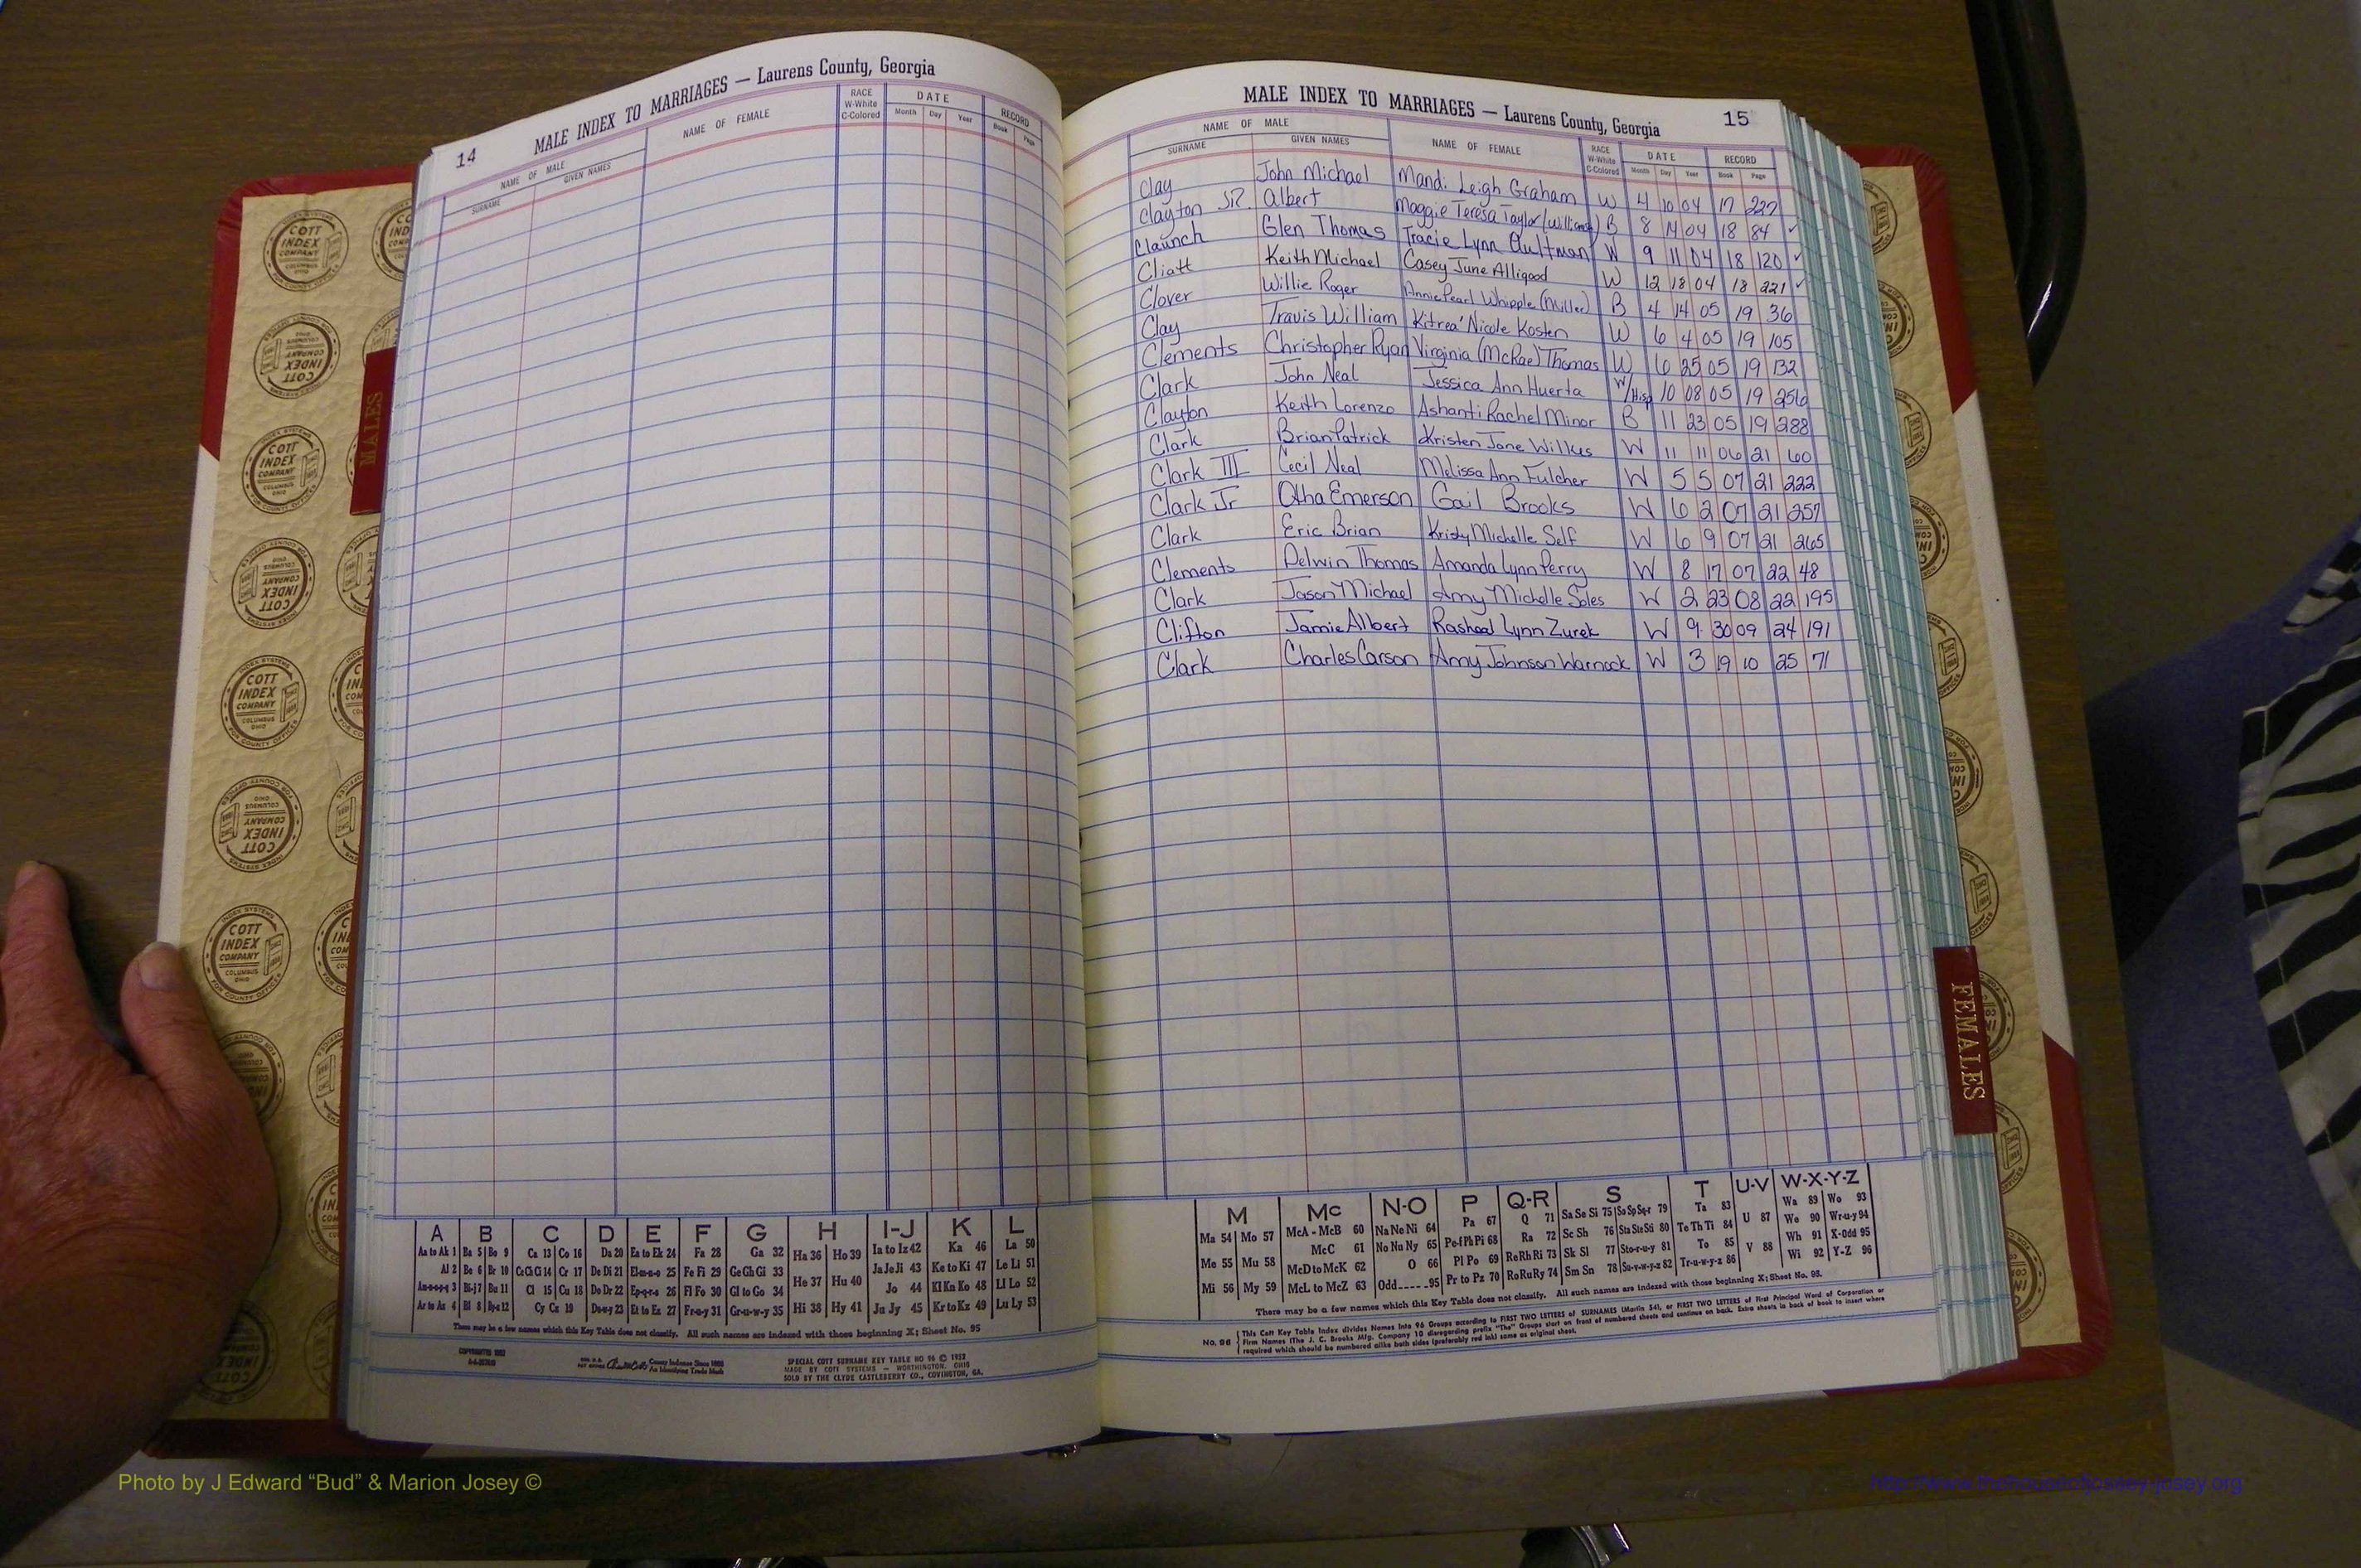 14 MALE INDEX TO MARRIAGES — Laurens County, Georgia
NAME OF MALE
SURNAME GIVEN NAMES
NAME OF FEMALE
RACE
W-White
C-Colored
DATE
Month Day Year
RECORD
Book Page
A B C D E F G H I-J K L
Aa to Ak 1 Ba 5 Bo 9 Ca 13 Co 16 Da 20 Ea to Ek 24 Fa 28 Ga 32 Ha 36 Ho 39 Ia to Iz 42 Ka 46 La 50
Al 2 Be 6 Br 10 Ce Ch Ci 14 Cr 17 De Di 21 El-m-n-o 25 Fe Fi 29 Ge Gh Gi 33 He 37 Hu 40 Ja Je Ji 43 Ke to Ki 47 Le Li 51
An-o-p-q 3 Bi-j 7 Bu 11 Cl 15 Cu 18 Do Dr 22 Ep-q-r-s 26 Fl Fo 30 Gl to Go 34 Jo 44 Kl Kn Ko 48 Ll Lo 52
Ar to Az 4 Bl 8 By-z 12 Cy Cz 19 Du-w-y 23 Et to Ez 27 Fr-u-y 31 Gr-u-w-y 35 Hi 38 Hy 41 Ju Jy 45 Kr to Kz 49 Lu Ly 53
There may be a few names which this Key Table does not classify. All such names are indexed with those beginning X; Sheet No. 95
COPYRIGHTED 1952
County Indexes Since 1888
An Identifying Trade Mark
SPECIAL COTT SURNAME KEY TABLE NO 96 © 1952
MADE BY COTT SYSTEMS — WORTHINGTON, OHIO
SOLD BY THE CLYDE CASTLEBERRY CO., COVINGTON, GA.
MALE INDEX TO MARRIAGES — Laurens County, Georgia 15
NAME OF MALE
SURNAME GIVEN NAMES
NAME OF FEMALE
RACE
W-White
C-Colored
DATE
Month Day Year
RECORD
Book Page
Clay John Michael Mandi Leigh Graham W 4 10 04 17 227
Clayton SR. Albert Maggie Teresa Taylor (Williams) B 8 04 18 84 ✓
Claunch Glen Thomas Tracie Lynn Aultman W 9 11 04 18 120 ✓
Cliatt Keith Michael Casey June Alligood W 12 18 04 18 221 ✓
Clover Willie Roger Annie Pearl Whipple (Miller) B 4 14 05 19 36
Clay Travis William Kitrea' Nicole Kosten W 6 4 05 19 105
Clements Christopher Ryan Virginia (McRae) Thomas W 6 25 05 19 132
Clark John Neal Jessica Ann Huerta W/Hisp 10 08 05 19 256
Clayton Keith Lorenzo Ashanti Rachel Minor B 11 23 05 19 288
Clark Brian Patrick Kristen Jane Wilkes W 11 11 06 21 60
Clark III Cecil Neal Melissa Ann Fulcher W 5 5 07 21 222
Clark Jr Otha Emerson Gail Brooks W 6 2 07 21 257
Clark Eric Brian Kristy Michelle Self W 6 9 07 21 265
Clements Delwin Thomas Amanda Lynn Perry W 8 17 07 22 48
Clark Jason Michael Amy Michelle Soles W 2 23 08 22 195
Clifton Jamie Albert Lynn Zurek W 9 30 09 24 191
Clark Charles Carson Amy Johnson Warnock W 3 19 10 25 71
M Mc N-O P Q-R S T U-V W-X-Y-Z
Ma 54 Mo 57 McA - McB 60 Na Ne Ni 64 Pa 67 Q 71 Sa Se Si 75 So Sp Sq-r 79 Ta 83 U 87 Wa 89 Wo 93
Me 55 Mu 58 McC 61 No Nu Ny 65 Pe-f Ph Pi 68 Ra 72 Sc Sh 76 Sta Ste Sti 80 Te Th Ti 84 We 90 Wr-u-y 94
McD to McK 62 O 66 Pl Po 69 Re Rh Ri 73 Sk Sl 77 Sto-r-u-y 81 To 85 V 88 Wh 91 X-Odd 95
Mi 56 My 59 McL to McZ 63 Odd 95 Pr to Pz 70 Ro Ru Ry 74 Sm Sn 78 Su-v-w-y-z 82 Tr-u-w-y-z 86 Wi 92 Y-Z 96
There may be a few names which this Key Table does not classify. All such names are indexed with those beginning X; Sheet No. 95.
No. 96 This Cott Key Table Index divides Names into 96 Groups according to FIRST TWO LETTERS of SURNAMES (Martin 54), or FIRST TWO LETTERS of First Principal Word of Corporation or
Firm Names (The J. C. Brooks Mfg. Company 10 disregarding prefix "The" Groups start on front of numbered sheets and continue on back. Extra sheets in back of book to insert where
required which should be numbered alike both sides (preferably red ink) same as original sheet.
MALES
FEMALES
COTT
INDEX
COMPANY
COLUMBUS
OHIO
INDEX SYSTEMS
FOR COUNTY OFFICES
Photo by J Edward “Bud” & Marion Josey ©
http://www.thehouseofjossey-josey.org